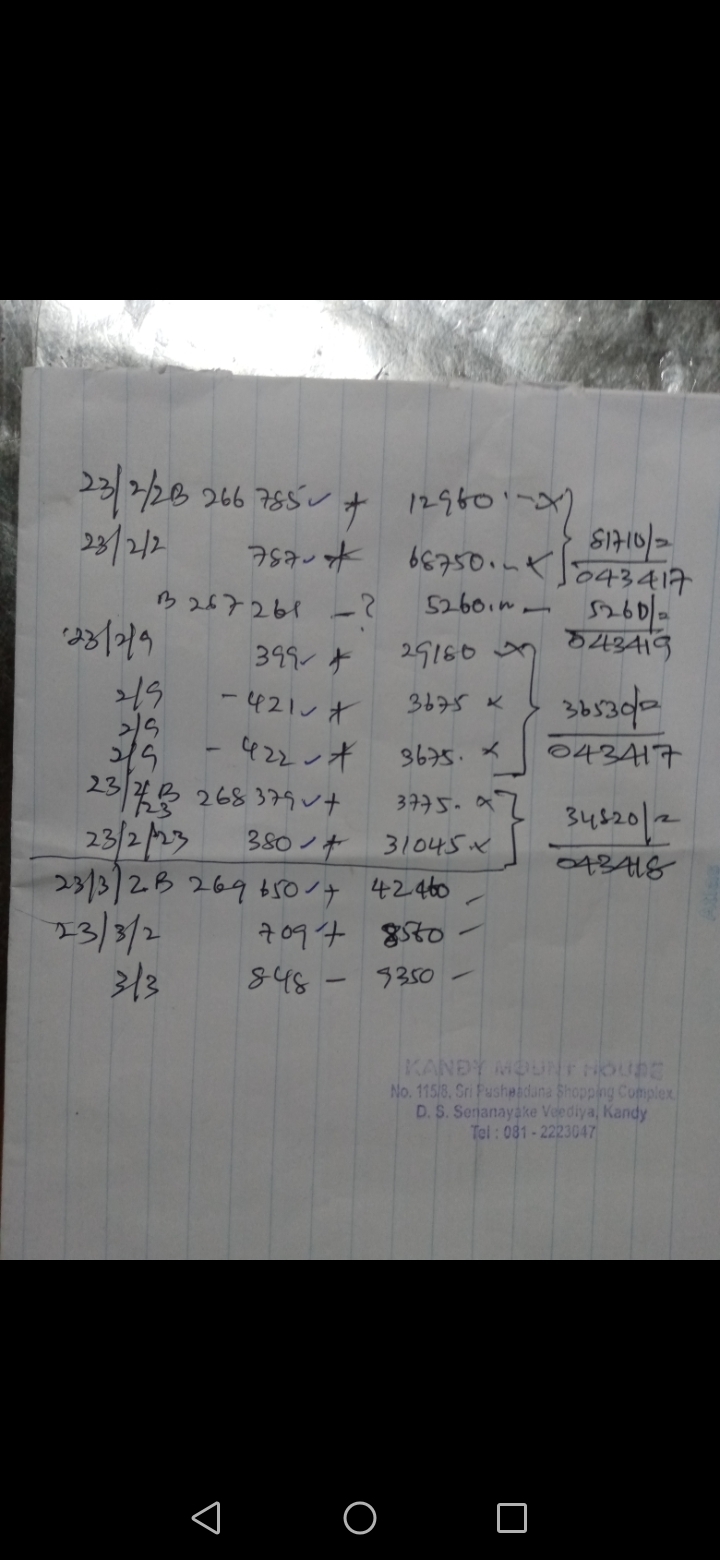 23/2/2 B 266 785 ✓ + 12960.— x
81710/=
23/2/2 787 ✓ + 68750.— x
043417
B 267 261 — ? 5260.— —
5260/=
043419
23/2/9 399 ✓ + 29180 x
2/9 - 421 ✓ + 3675 x
36530/=
2/9
2/9 - 422 ✓ + 3675. x
043417
23/2/23 B 268 379 ✓ + 3775. x
34820/=
23/2/23 380 ✓ + 31045 x
043418
23/3/2 B 269 650 ✓ + 42460 —
23/3/2 709 ✓ + 8560 —
3/3 848 — 9350 —
KANDY MOUNT HOUSE
No. 115/8, Sri Pushpadana Shopping Complex,
D. S. Senanayake Veediya, Kandy
Tel : 081 - 2223047